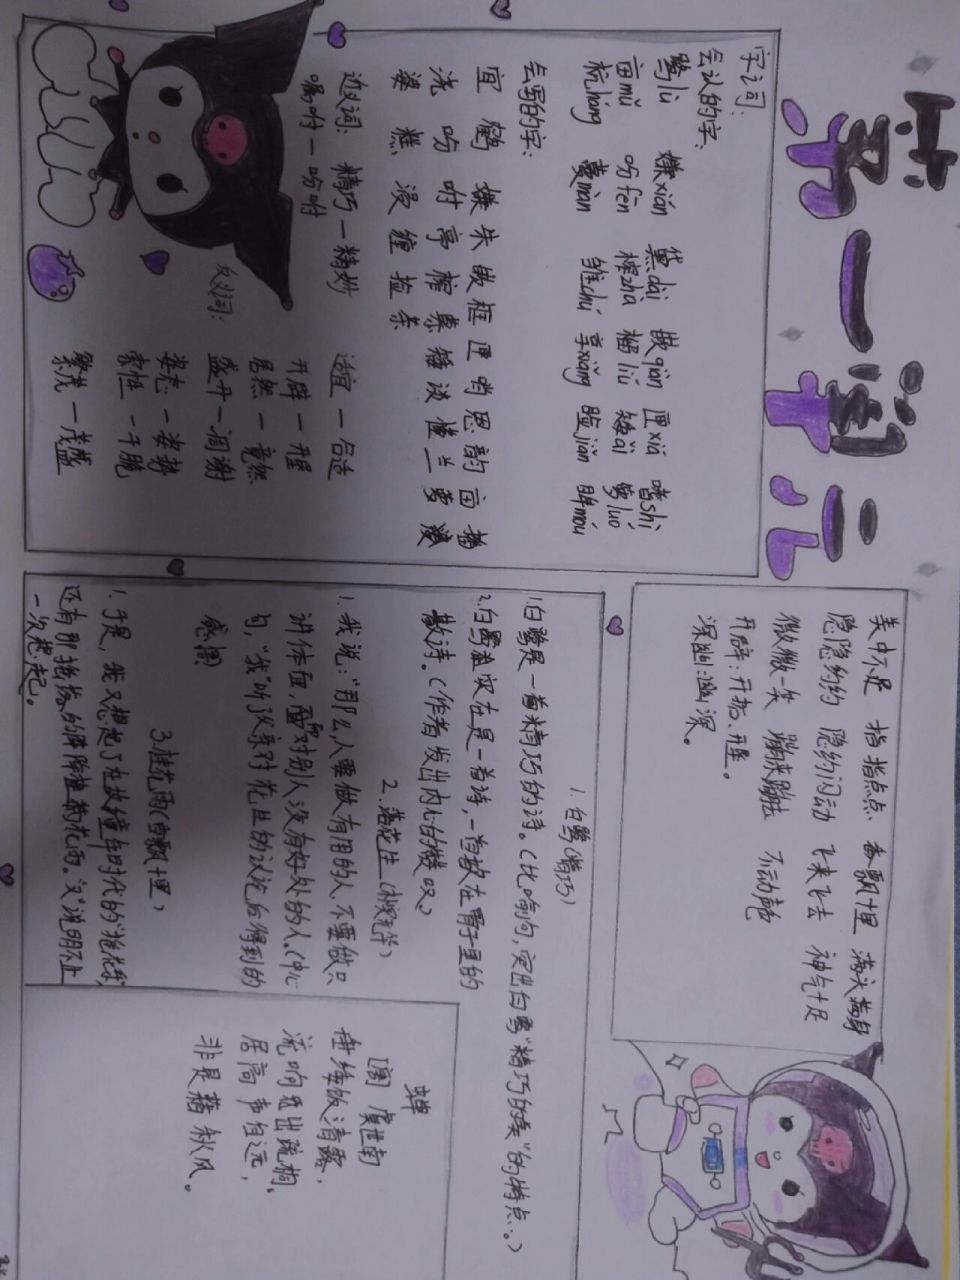 第一单元
字词:
会认的字:
鹭lù 嫌xián 黛dài 嵌qiàn 匣xiá 嗜shì
亩mǔ 吩fēn 榨zhà 榴liú 矮ǎi 箩luó
杭háng 蔓màn 雏chú 享xiǎng 睑jiǎn 眸móu
会写的字:
宜 鹤 嫌 朱 嵌 框 匣 哨 恩 韵 亩 播
浇 吩 咐 亭 榨 慕 矮 谈 懂 兰 箩
婆 糕 浸 缠 捡 茶
近义词: 精巧一精妙 适宜一合适
嘱咐一吩咐 开辟一开垦
居然一竟然
反义词: 盛开一凋谢
姿态一姿势
索性一干脆
繁茂一茂盛
美中不足 指指点点 香飘十里 满头满身
隐隐约约 隐约闪动 飞来飞去 神气十足
微微一笑
开辟:开拓、开垦。
深幽:幽深。
1.白鹭(精巧)
1.白鹭是一首精巧的诗。(比喻句,突出白鹭“精巧的美”的特点。)
2.白鹭实在是一首诗,一首韵在骨子里的
散诗。(作者发出内心的赞叹)
2.落花生
1.我说:“那么,人要做有用的人,不要做只
讲体面,而对别人没有好处的人。(中心
句,“我”听了父亲对花生的议论后得到的
感悟。
3.桂花雨(香飘十里)
1.于是,我又想起了在故乡童年时代的“摇花乐”,
还有那摇落的阵阵桂花雨。“又”说明不止
一次想起。
蝉
虞世南
垂緌饮清露,
流响出疏桐。
居高声自远,
非是藉秋风。